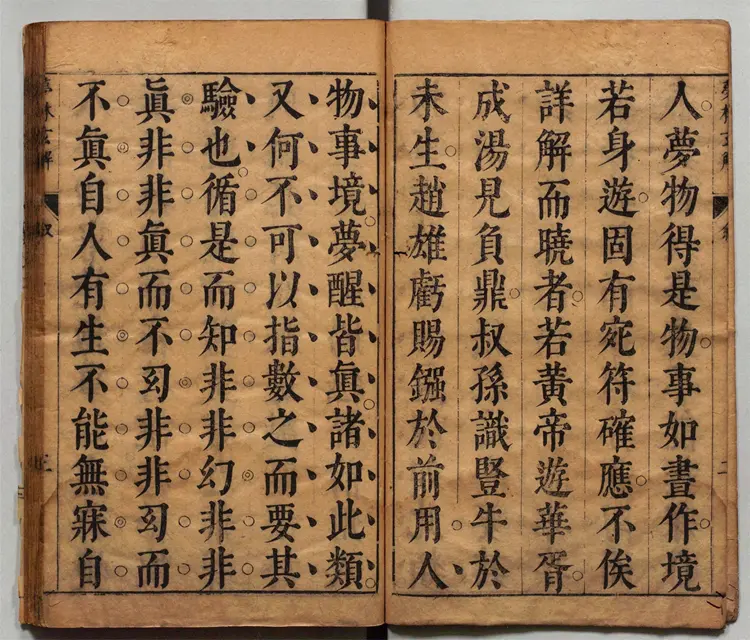 夢林玄解
敘
二
人夢物得是物事如晝作境
若身遊固有宛符確應不俟
詳解而曉者若黃帝遊華胥
成湯見負鼎叔孫識豎牛於
未生趙雄虧賜鏹於前用人
物事境夢醒皆眞諸如此類
又何不可以指數之而要其
驗也循是而知非非幻非非
眞非非眞而不幻非非幻而
不眞自人有生不能無寐自
夢林玄解
敘
三